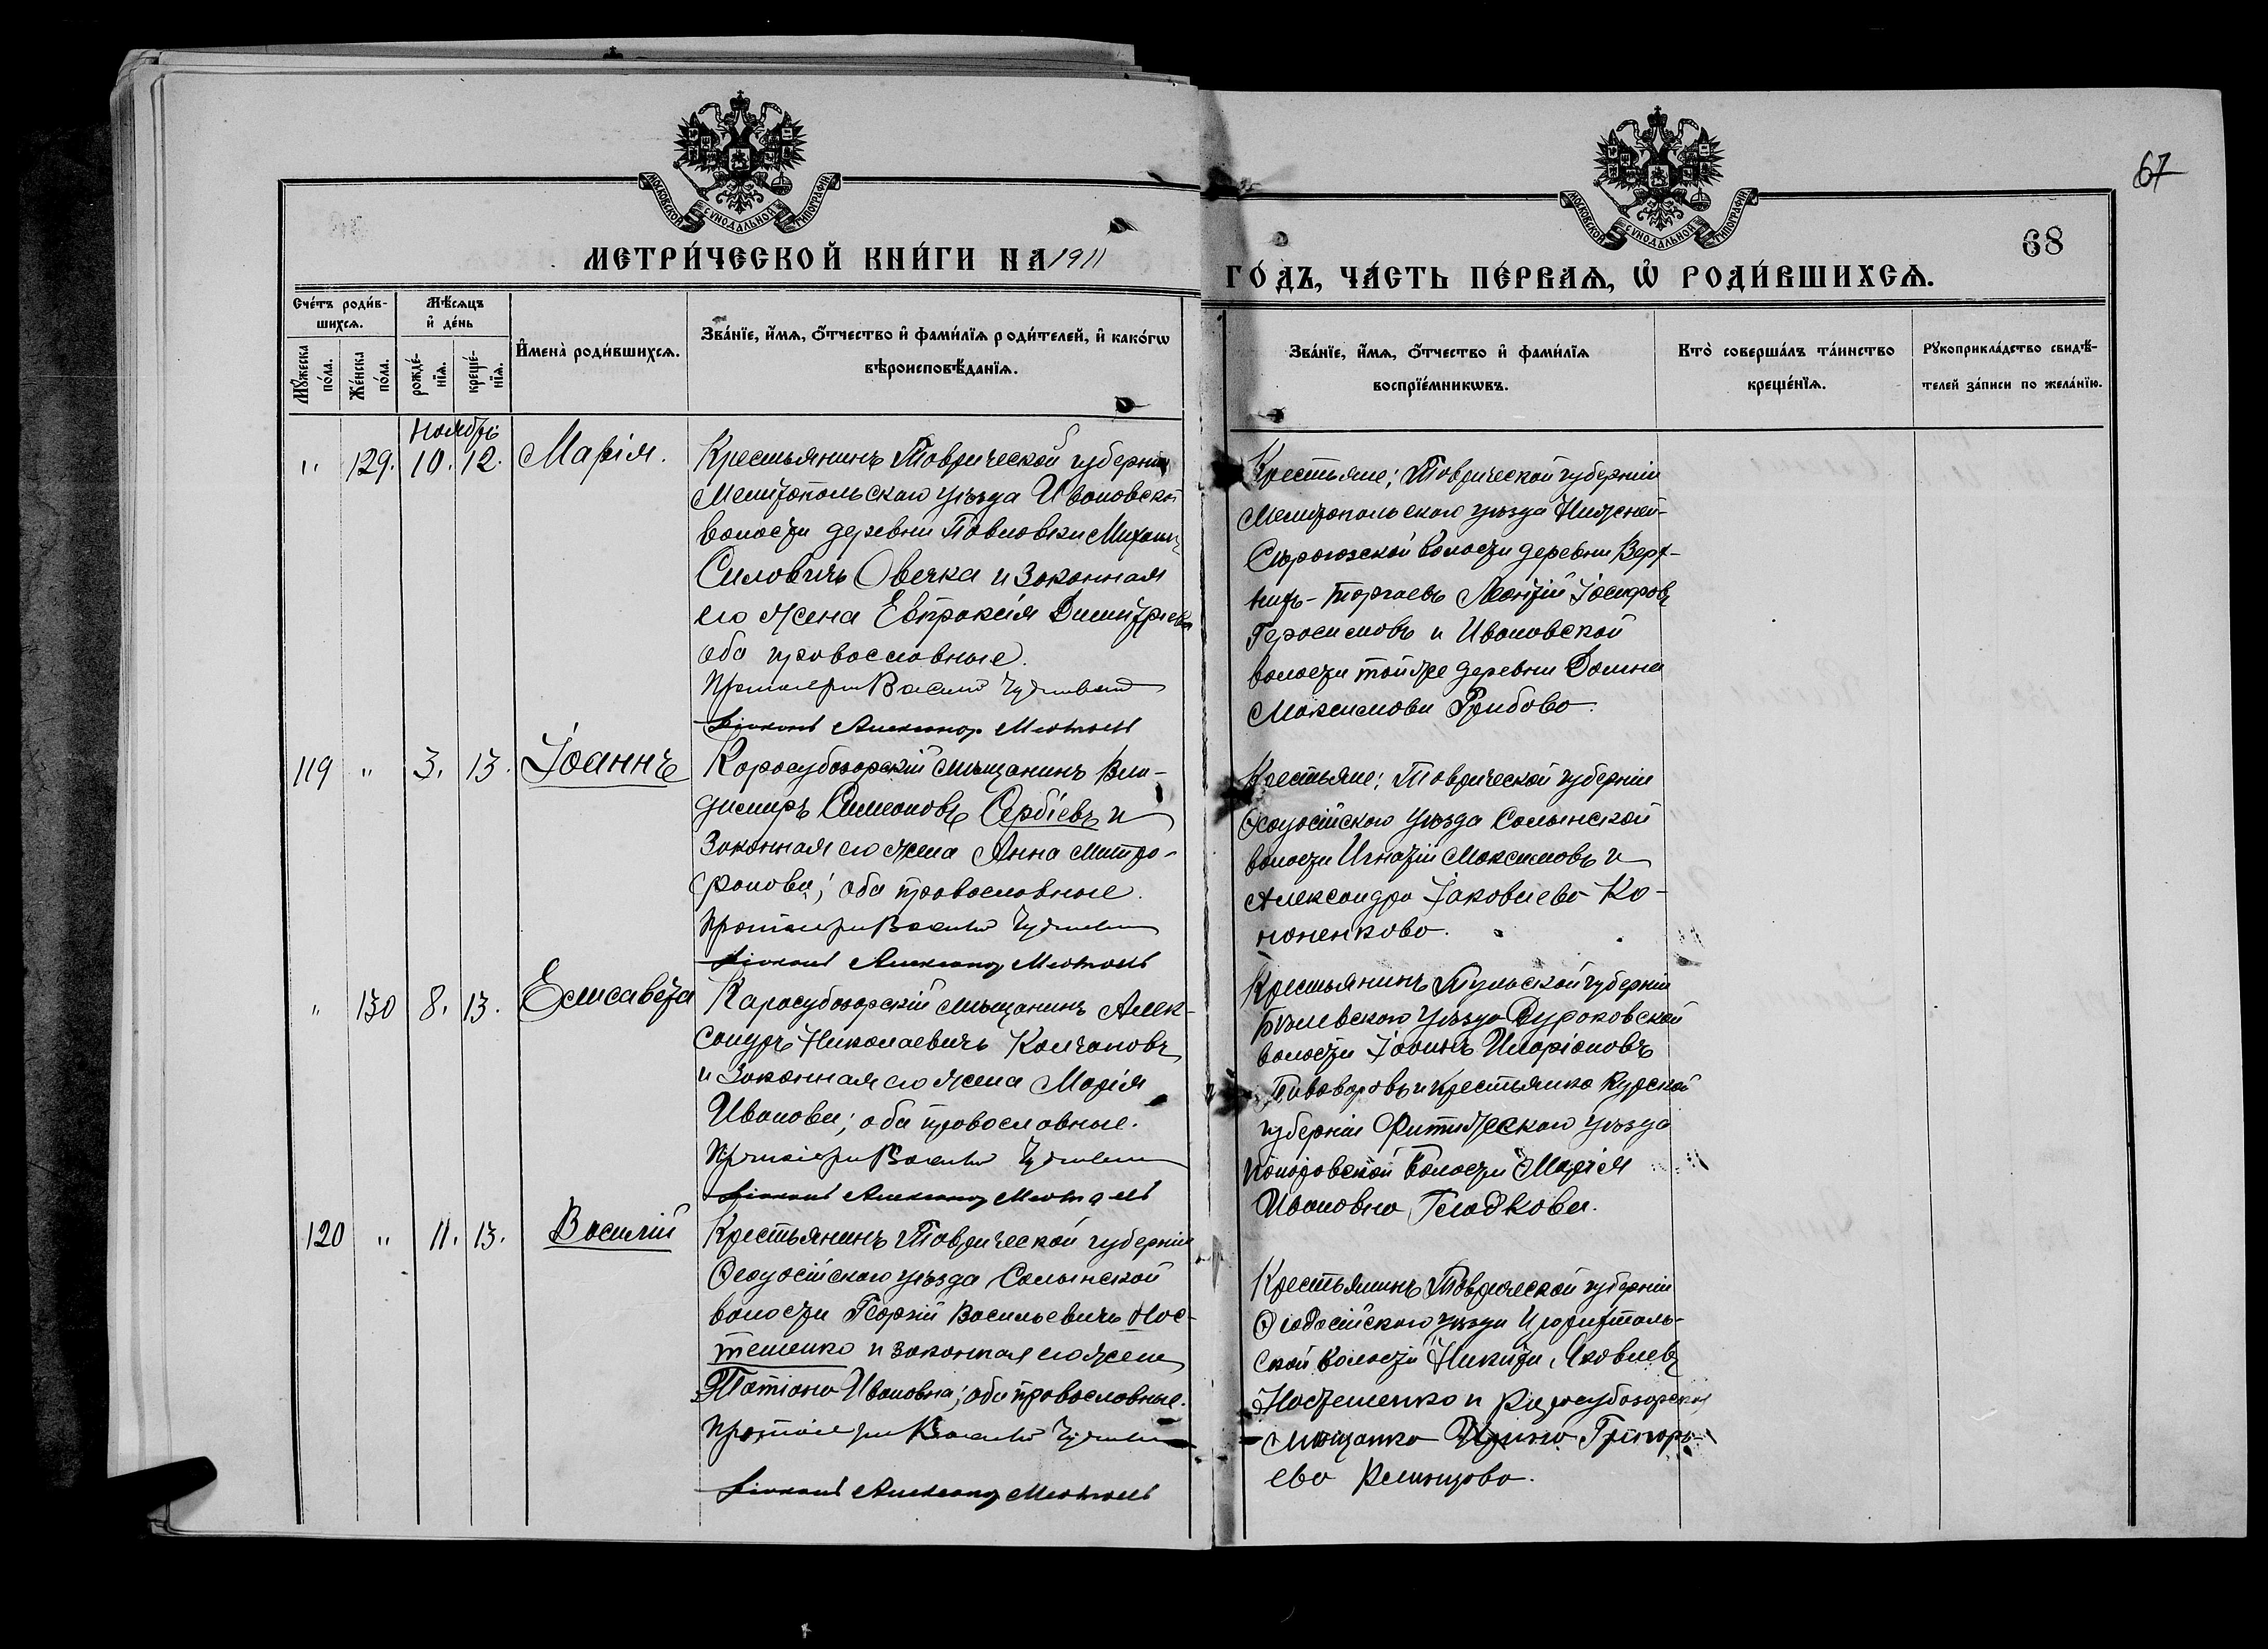 67
68
МОСКОВСКОЙ СУНОДАЛЬНОЙ ТИПОГРАФІИ
МОСКОВСКОЙ СУНОДАЛЬНОЙ ТИПОГРАФІИ
МЕТРИ́ЧЕСКОЙ КНИ́ГИ НА 1911
ГО́ДЪ, ЧА́СТЬ ПЕ́РВАѦ, Ѡ РОДИ́ВШИХСѦ.
Сче́тъ роди́в-
шихсѧ.
Мѣ́сѧцъ
и҆ де́нь
Мꙋ́жеска
по́ла.
Же́нска
по́ла.
рожде́-
нїѧ.
креще́-
нїѧ.
И҆мена̀ роди́вшихсѧ.
Зва́нїе, и҆́мѧ, ѻ҆́тчество и҆ фами́лїѧ роди́телей, и҆ како́гѡ
вѣроисповѣ́данїѧ.
Зва́нїе, и҆́мѧ, ѻ҆́тчество и҆ фами́лїѧ
воспрїе́мникѡвъ.
Кто̀ соверша́лъ та́инство
креще́нїѧ.
Рꙋкоприкла́дство свидѣ́-
телей за́писи по жела́нїю.
Ноябрь
" 129. 10. 12. Марія.
Крестьянинъ Таврической губерніи
Мелитопольскаго уѣзда Ивановской
волости деревни Павловки Михаилъ
Силовичъ Овечка и законная
его жена Евпраксія Димитріева
оба православные.
Протоіерей Василій
Діаконъ Александръ
Крестьяне; Таврической губерніи
Мелитопольскаго уѣзда Нижней-
Сѣрогозской волости деревни Верх-
нихъ-Торгаевъ Леонтій Іосифовъ
Герасимовъ и Ивановской
волости той же деревни Домна
Максимова Грибова.
119 " 3. 13. Іоаннъ
Карасубазарскій мѣщанинъ Вла-
диміръ Симеоновъ Сербіевъ и
законная его жена Анна Митро-
фанова; оба православные.
Протоіерей Василій
Діаконъ Александръ
Крестьяне; Таврической губерніи
Ѳеодосійскаго уѣзда Салынской
волости Игнатій Максимовъ и
Александра Іаковлева Ко-
ноненкова.
" 130 8. 13. Елисавета
Карасубазарскій мѣщанинъ Алек-
сандръ Николаевичъ Колчановъ
и законная его жена Марія
Иванова; оба православные.
Протоіерей Василій
Діаконъ Александръ
Крестьянинъ Тульской губерніи
Бѣлевскаго уѣзда Дураковской
волости Іоаннъ Иларіоновъ
Пивоваровъ и крестьянка Курской
губерніи уѣзда
волости Марія
Ивановна Гладкова.
120 " 11. 13. Василій
Крестьянинъ Таврической губерніи
Ѳеодосійскаго уѣзда Салынской
волости Георгій Васильевичъ Нос-
тешенко и законная его жена
Татіана Ивановна; оба православные.
Протоіерей Василій
Діаконъ Александръ
Крестьянинъ Таврической губерніи
Ѳеодосійскаго уѣзда Цюрихталь-
ской волости Никита Яковлевъ
Ностешенко и Карасубазарская
мѣщанка Ирина Григорь-
ева